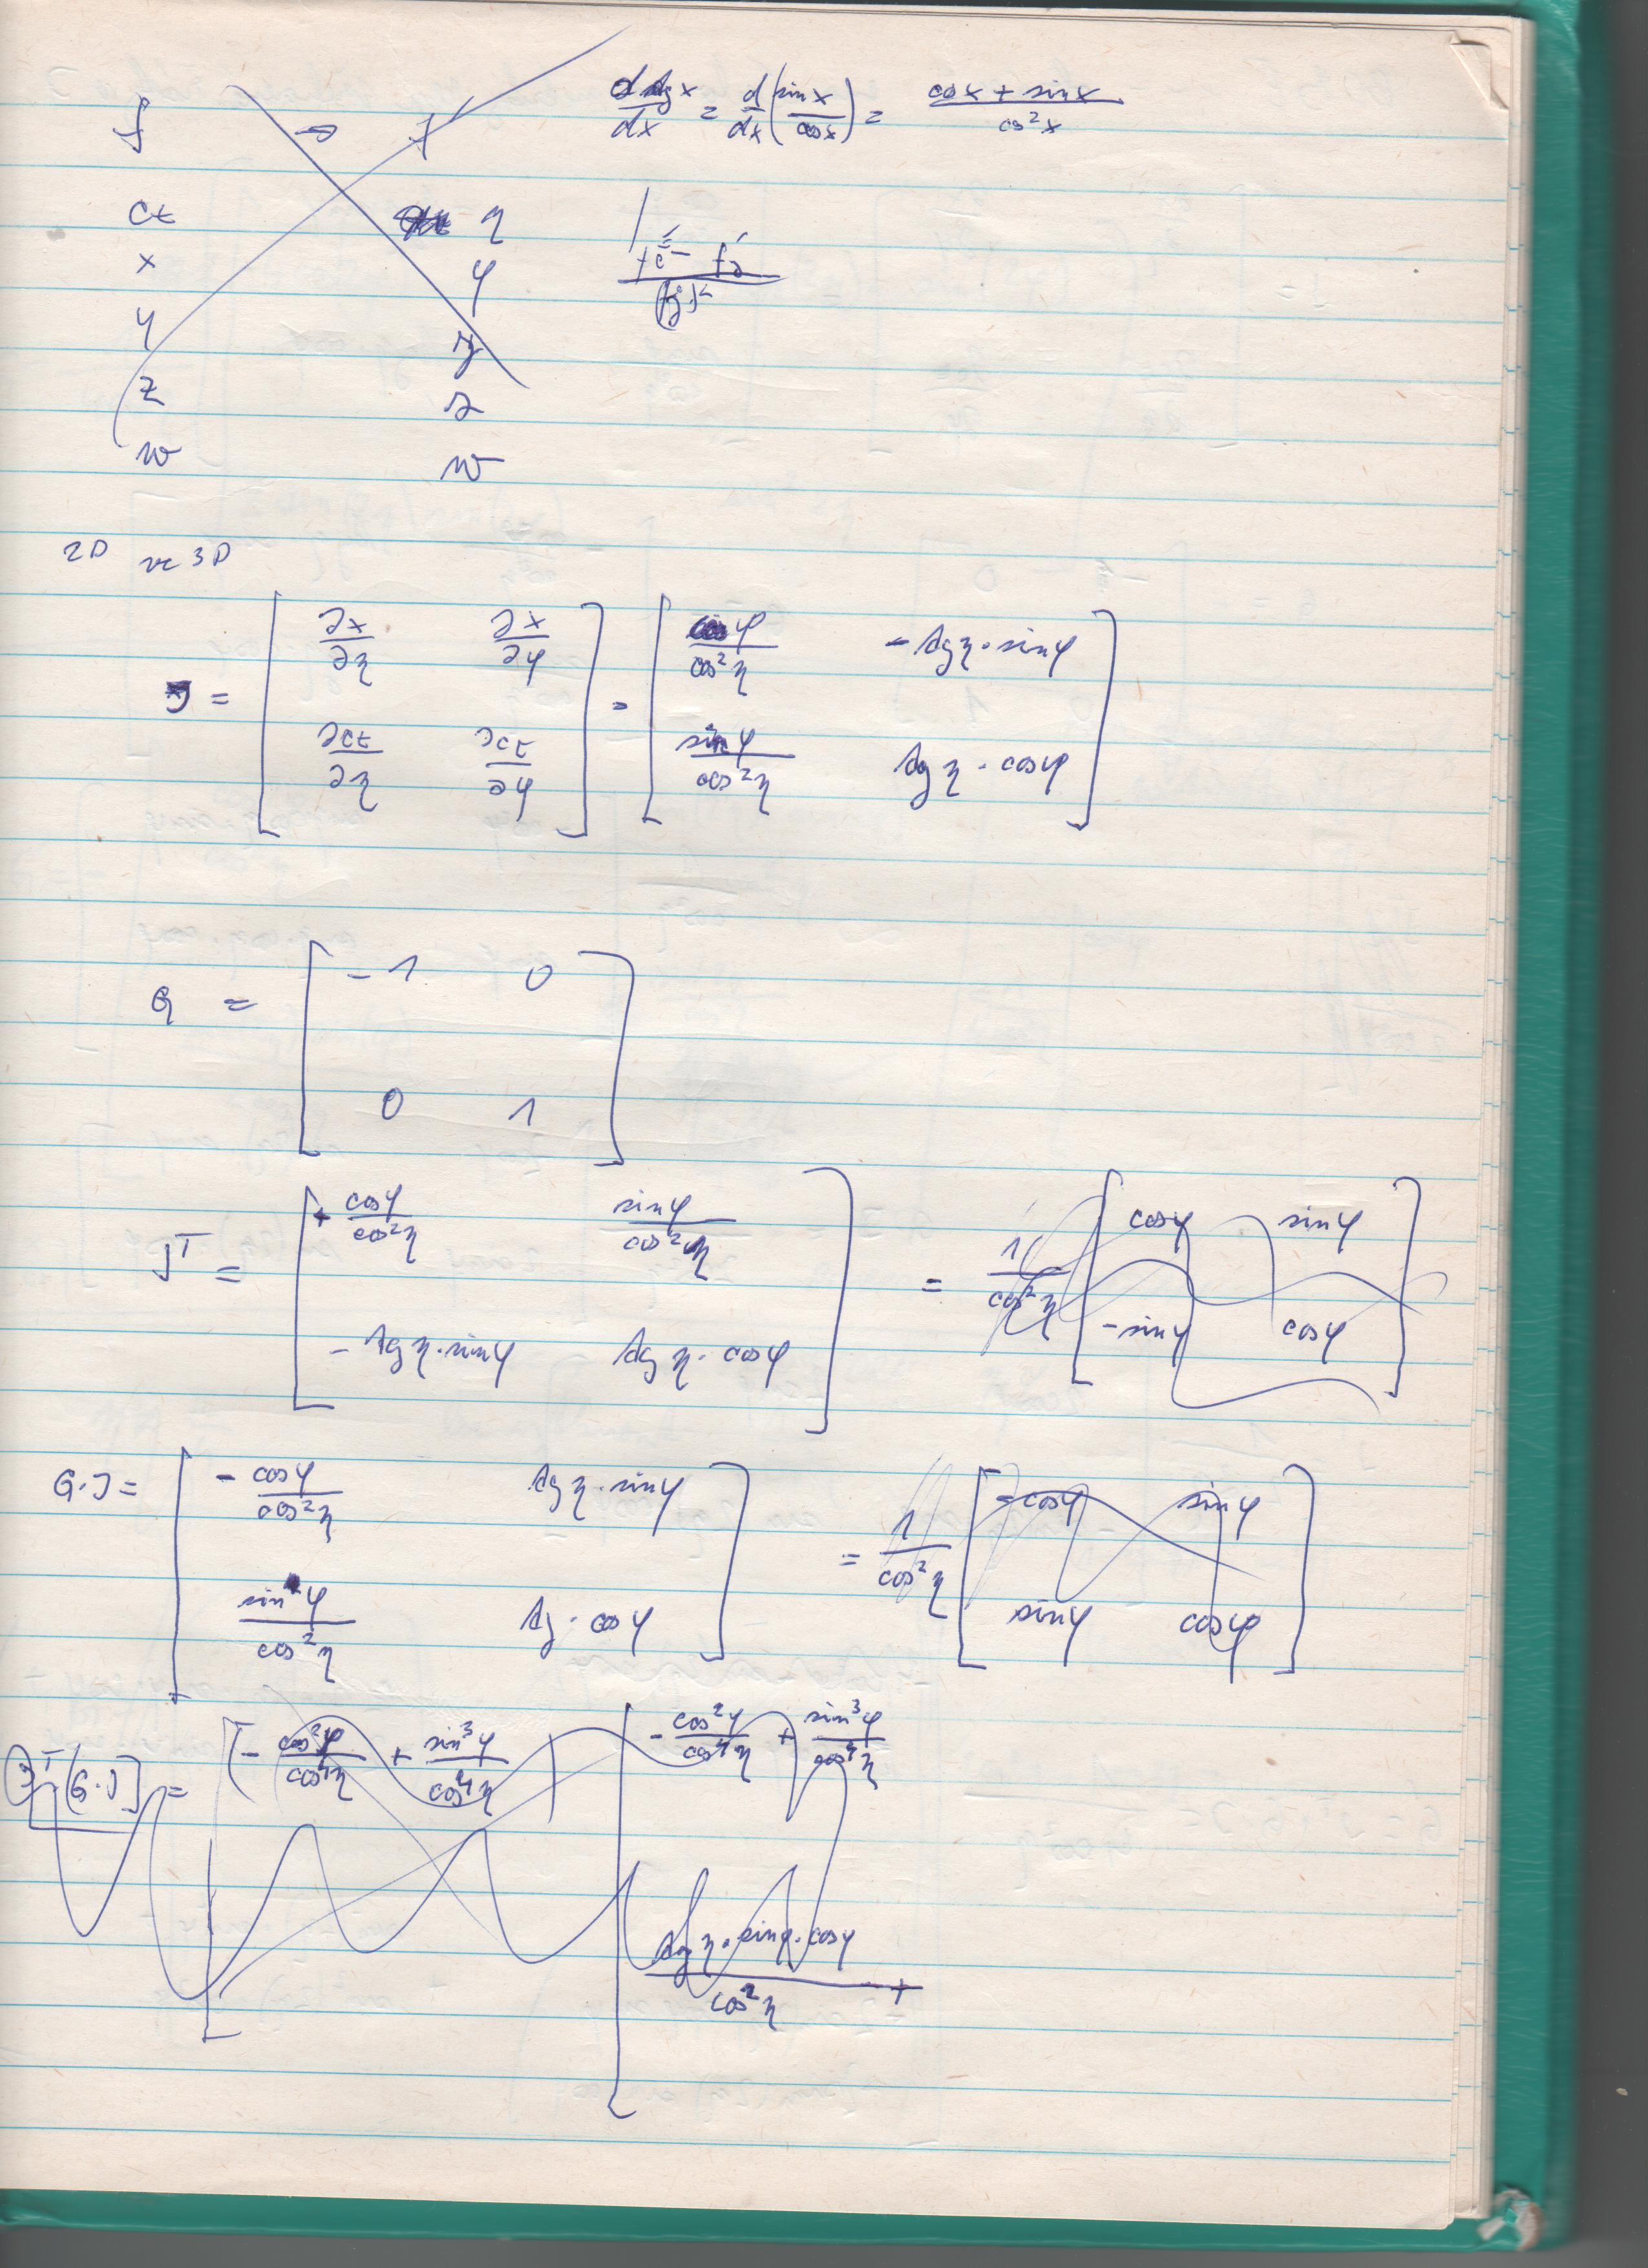 f → f'
d tg x / dx = d/dx (sin x / cos x) = cos x + sin x / cos² x
ct η
x φ
y y
z z
w w
2D vc 3D
J = [ ∂x/∂η ∂x/∂φ ; ∂ct/∂η ∂ct/∂φ ] = [ cos φ / cos² η - tg η · sin φ ; sin φ / cos² η tg η · cos φ ]
G = [ -1 0 ; 0 1 ]
J^T = [ + cos φ / cos² η sin φ / cos² η ; - tg η · sin φ tg η · cos φ ] = 1 / cos² η [ cos φ sin φ ; - sin φ cos φ ]
G·J = [ - cos φ / cos² η tg η · sin φ ; sin φ / cos² η tg · cos φ ] = 1 / cos² η [ - cos φ sin φ ; sin φ cos φ ]
J^T [G·J] = [ ( - cos² φ / cos⁴ η + sin³ φ / cos⁴ η ) [ - cos² φ / cos⁴ η + sin³ φ / cos⁴ η
tg η · sin φ · cos φ / cos² η +